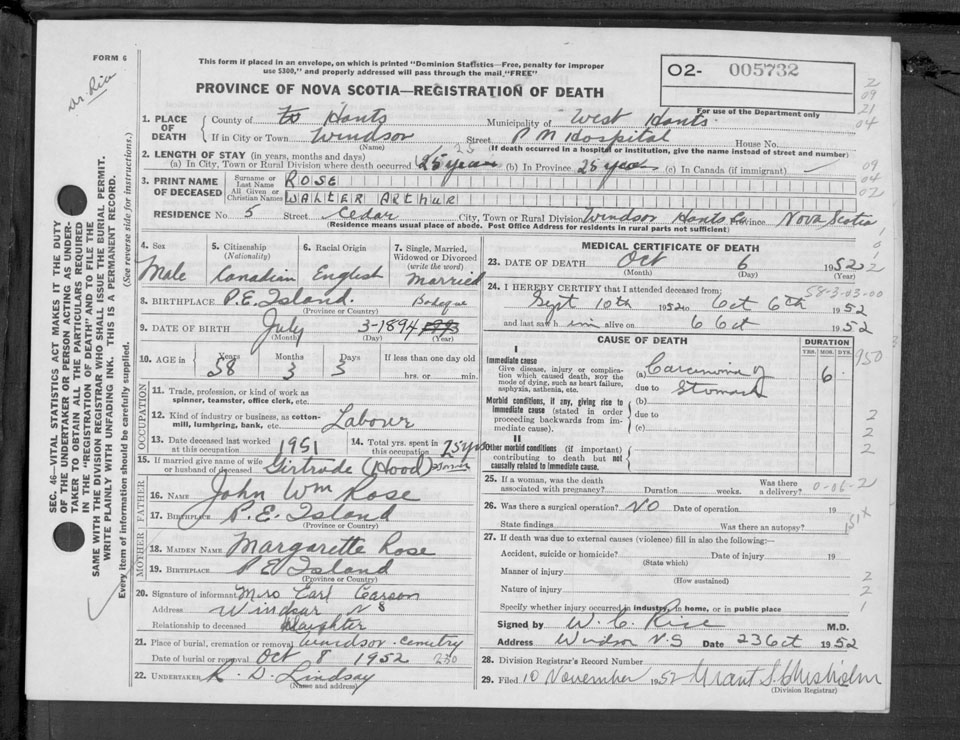 FORM 6
Dr. Rice
This form if placed in an envelope, on which is printed "Dominion Statistics—Free, penalty for improper
use $300," and properly addressed will pass through the mail "FREE"
PROVINCE OF NOVA SCOTIA—REGISTRATION OF DEATH
02- 005732
For use of the Department only
1. PLACE OF DEATH
County of Hants Municipality of West Hants
If in City or Town Windsor Street P M Hospital House No.
(Name) (If death occurred in a hospital or institution, give the name instead of street and number)
2. LENGTH OF STAY (in years, months and days)
(a) In City, Town or Rural Division where death occurred 25 years (b) In Province 25 years (c) In Canada (if immigrant)
3. PRINT NAME OF DECEASED
Surname or Last Name ROSE
All Given or Christian Names WALTER ARTHUR
RESIDENCE No. 5 Street Cedar City, Town or Rural Division Windsor Hants Co Province Nova Scotia
(Residence means usual place of abode. Post Office Address for residents in rural parts not sufficient)
4. Sex Male
5. Citizenship (Nationality) Canadian
6. Racial Origin English
7. Single, Married, Widowed or Divorced (write the word) Married
8. BIRTHPLACE P.E. Island. Bedeque
(Province or Country)
9. DATE OF BIRTH July 3-1894
(Month) (Day) (Year)
10. AGE in Years 58 Months 3 Days 3 If less than one day old
hrs. or min.
OCCUPATION
11. Trade, profession, or kind of work as
spinner, teamster, office clerk, etc.
12. Kind of industry or business, as cotton-
mill, lumbering, bank, etc. Labour
13. Date deceased last worked at this occupation 1951
14. Total yrs. spent in this occupation 25 yrs
15. If married give name of wife or husband of deceased Gertrude (Hood)
FATHER
16. NAME John Wm Rose
17. BIRTHPLACE P.E. Island
(Province or Country)
MOTHER
18. MAIDEN NAME Margarette Rose
19. BIRTHPLACE P E Island
(Province or Country)
20. Signature of informant Mrs Earl Carson
Address Windsor N S
Relationship to deceased Daughter
21. Place of burial, cremation or removal Windsor cemetry
Date of burial or removal Oct 8 1952
22. UNDERTAKER R. D. Lindsay
(Name and address)
MEDICAL CERTIFICATE OF DEATH
23. DATE OF DEATH Oct 6 1952
(Month) (Day) (Year)
24. I HEREBY CERTIFY that I attended deceased from:
58-3-03-00
Sept 10th 1952 to Oct 6th 1952
and last saw him alive on 6 Oct 1952
CAUSE OF DEATH
DURATION
YRS. MOS. DYS.
I
Immediate cause
Give disease, injury or complica-
tion which caused death, NOT the
mode of dying, such as heart failure,
asphyxia, asthenia, etc.
(a) Carcinoma of 6
due to Stomach
Morbid conditions, if any, giving rise to
immediate cause (stated in order
proceeding backwards from im-
mediate cause).
(b)
due to
(c)
II
Other morbid conditions (if important)
contributing to death but not
causally related to immediate cause.
25. If a woman, was the death
associated with pregnancy? Duration weeks. Was there a delivery?
26. Was there a surgical operation? NO Date of operation 19
State findings Was there an autopsy?
151X
27. If death was due to external causes (violence) fill in also the following:—
Accident, suicide or homicide? Date of injury 19
(State which)
Manner of injury
(How sustained)
Nature of injury
Specify whether injury occurred in industry, in home, or in public place
Signed by W. C. Rice M.D.
Address Windsor N.S Date 23 Oct 1952
28. Division Registrar's Record Number
29. Filed 10 November 1952 Grant S. Chisholm
(Division Registrar)
SEC. 46—VITAL STATISTICS ACT MAKES IT THE DUTY
OF THE UNDERTAKER OR PERSON ACTING AS UNDER-
TAKER TO OBTAIN ALL THE PARTICULARS REQUIRED
IN THE "REGISTRATION OF DEATH" AND TO FILE THE
SAME WITH THE DIVISION REGISTRAR WHO SHALL ISSUE THE BURIAL PERMIT.
WRITE PLAINLY WITH UNFADING INK. THIS IS A PERMANENT RECORD.
Every item of information should be carefully supplied. (See reverse side for instructions.)